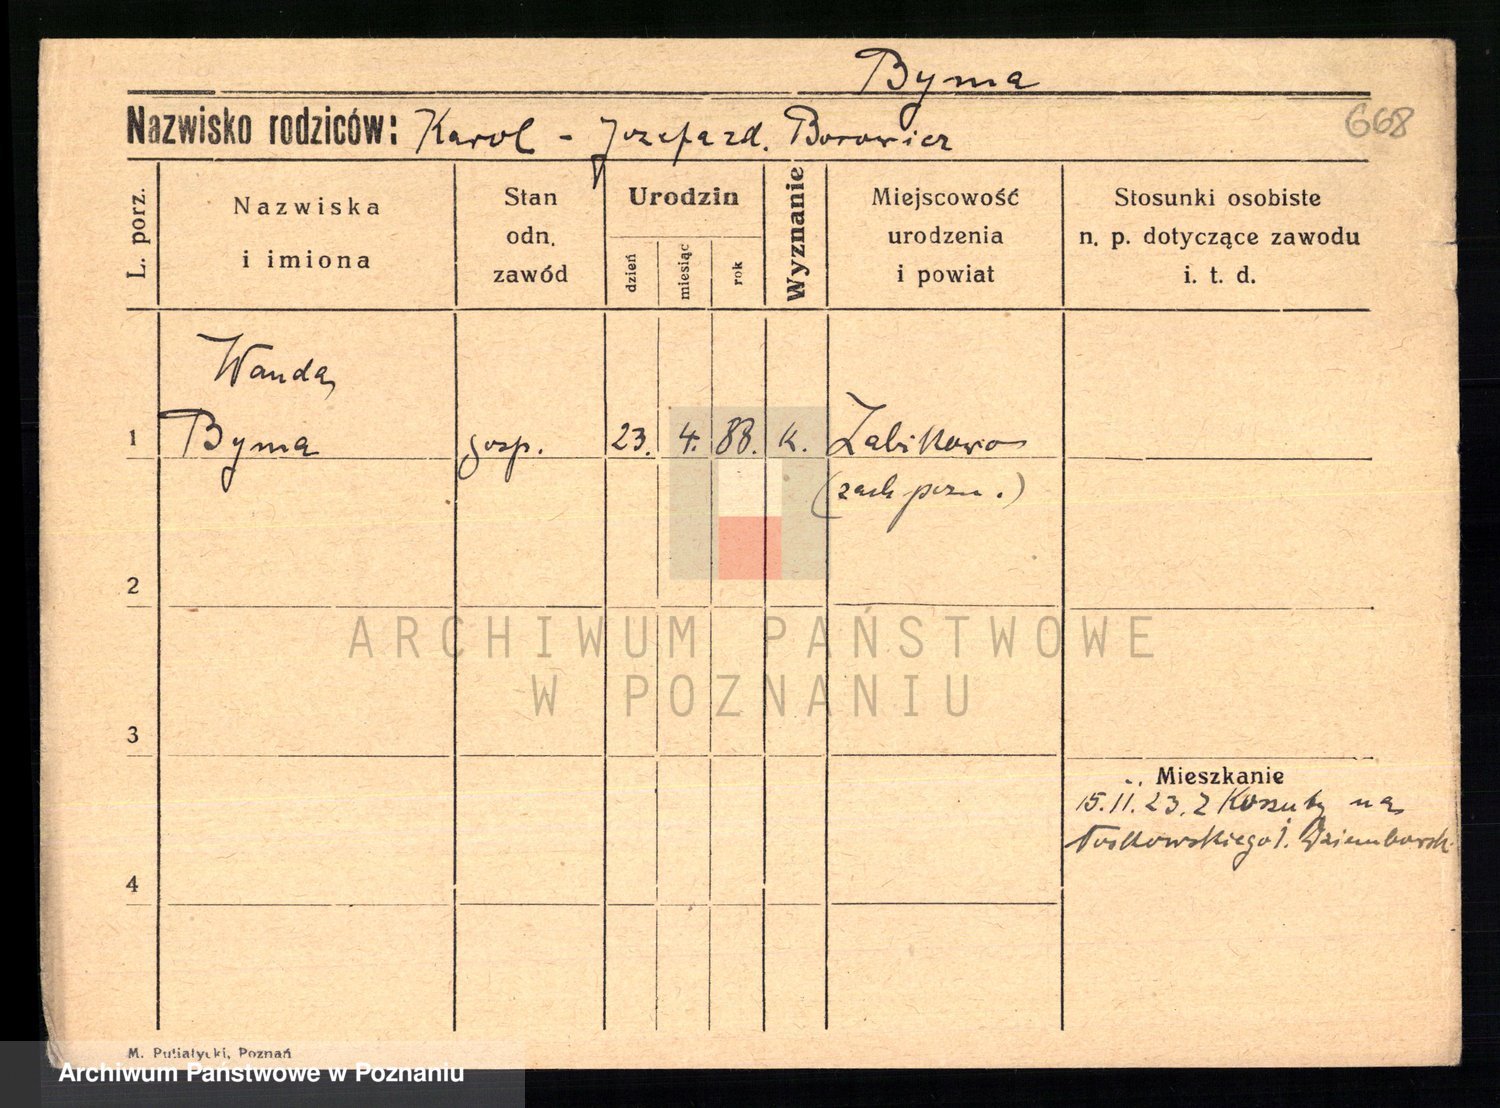 Byma
668
Nazwisko rodziców: Karol - Jozefa zd. Borowicz
L. porz.
Nazwiska
i imiona
Stan
odn.
zawód
Urodzin
dzień
miesiąc
rok
Wyznanie
Miejscowość
urodzenia
i powiat
Stosunki osobiste
n. p. dotyczące zawodu
i. t. d.
Wanda
1 Byma gosp. 23. 4. 88. k. Zabikowo
(zach pozn.)
2
ARCHIWUM PAŃSTWOWE
W POZNANIU
3
Mieszkanie
15.11.23. z Koszuty na
4
M. Putiatycki, Poznań
Archiwum Państwowe w Poznaniu